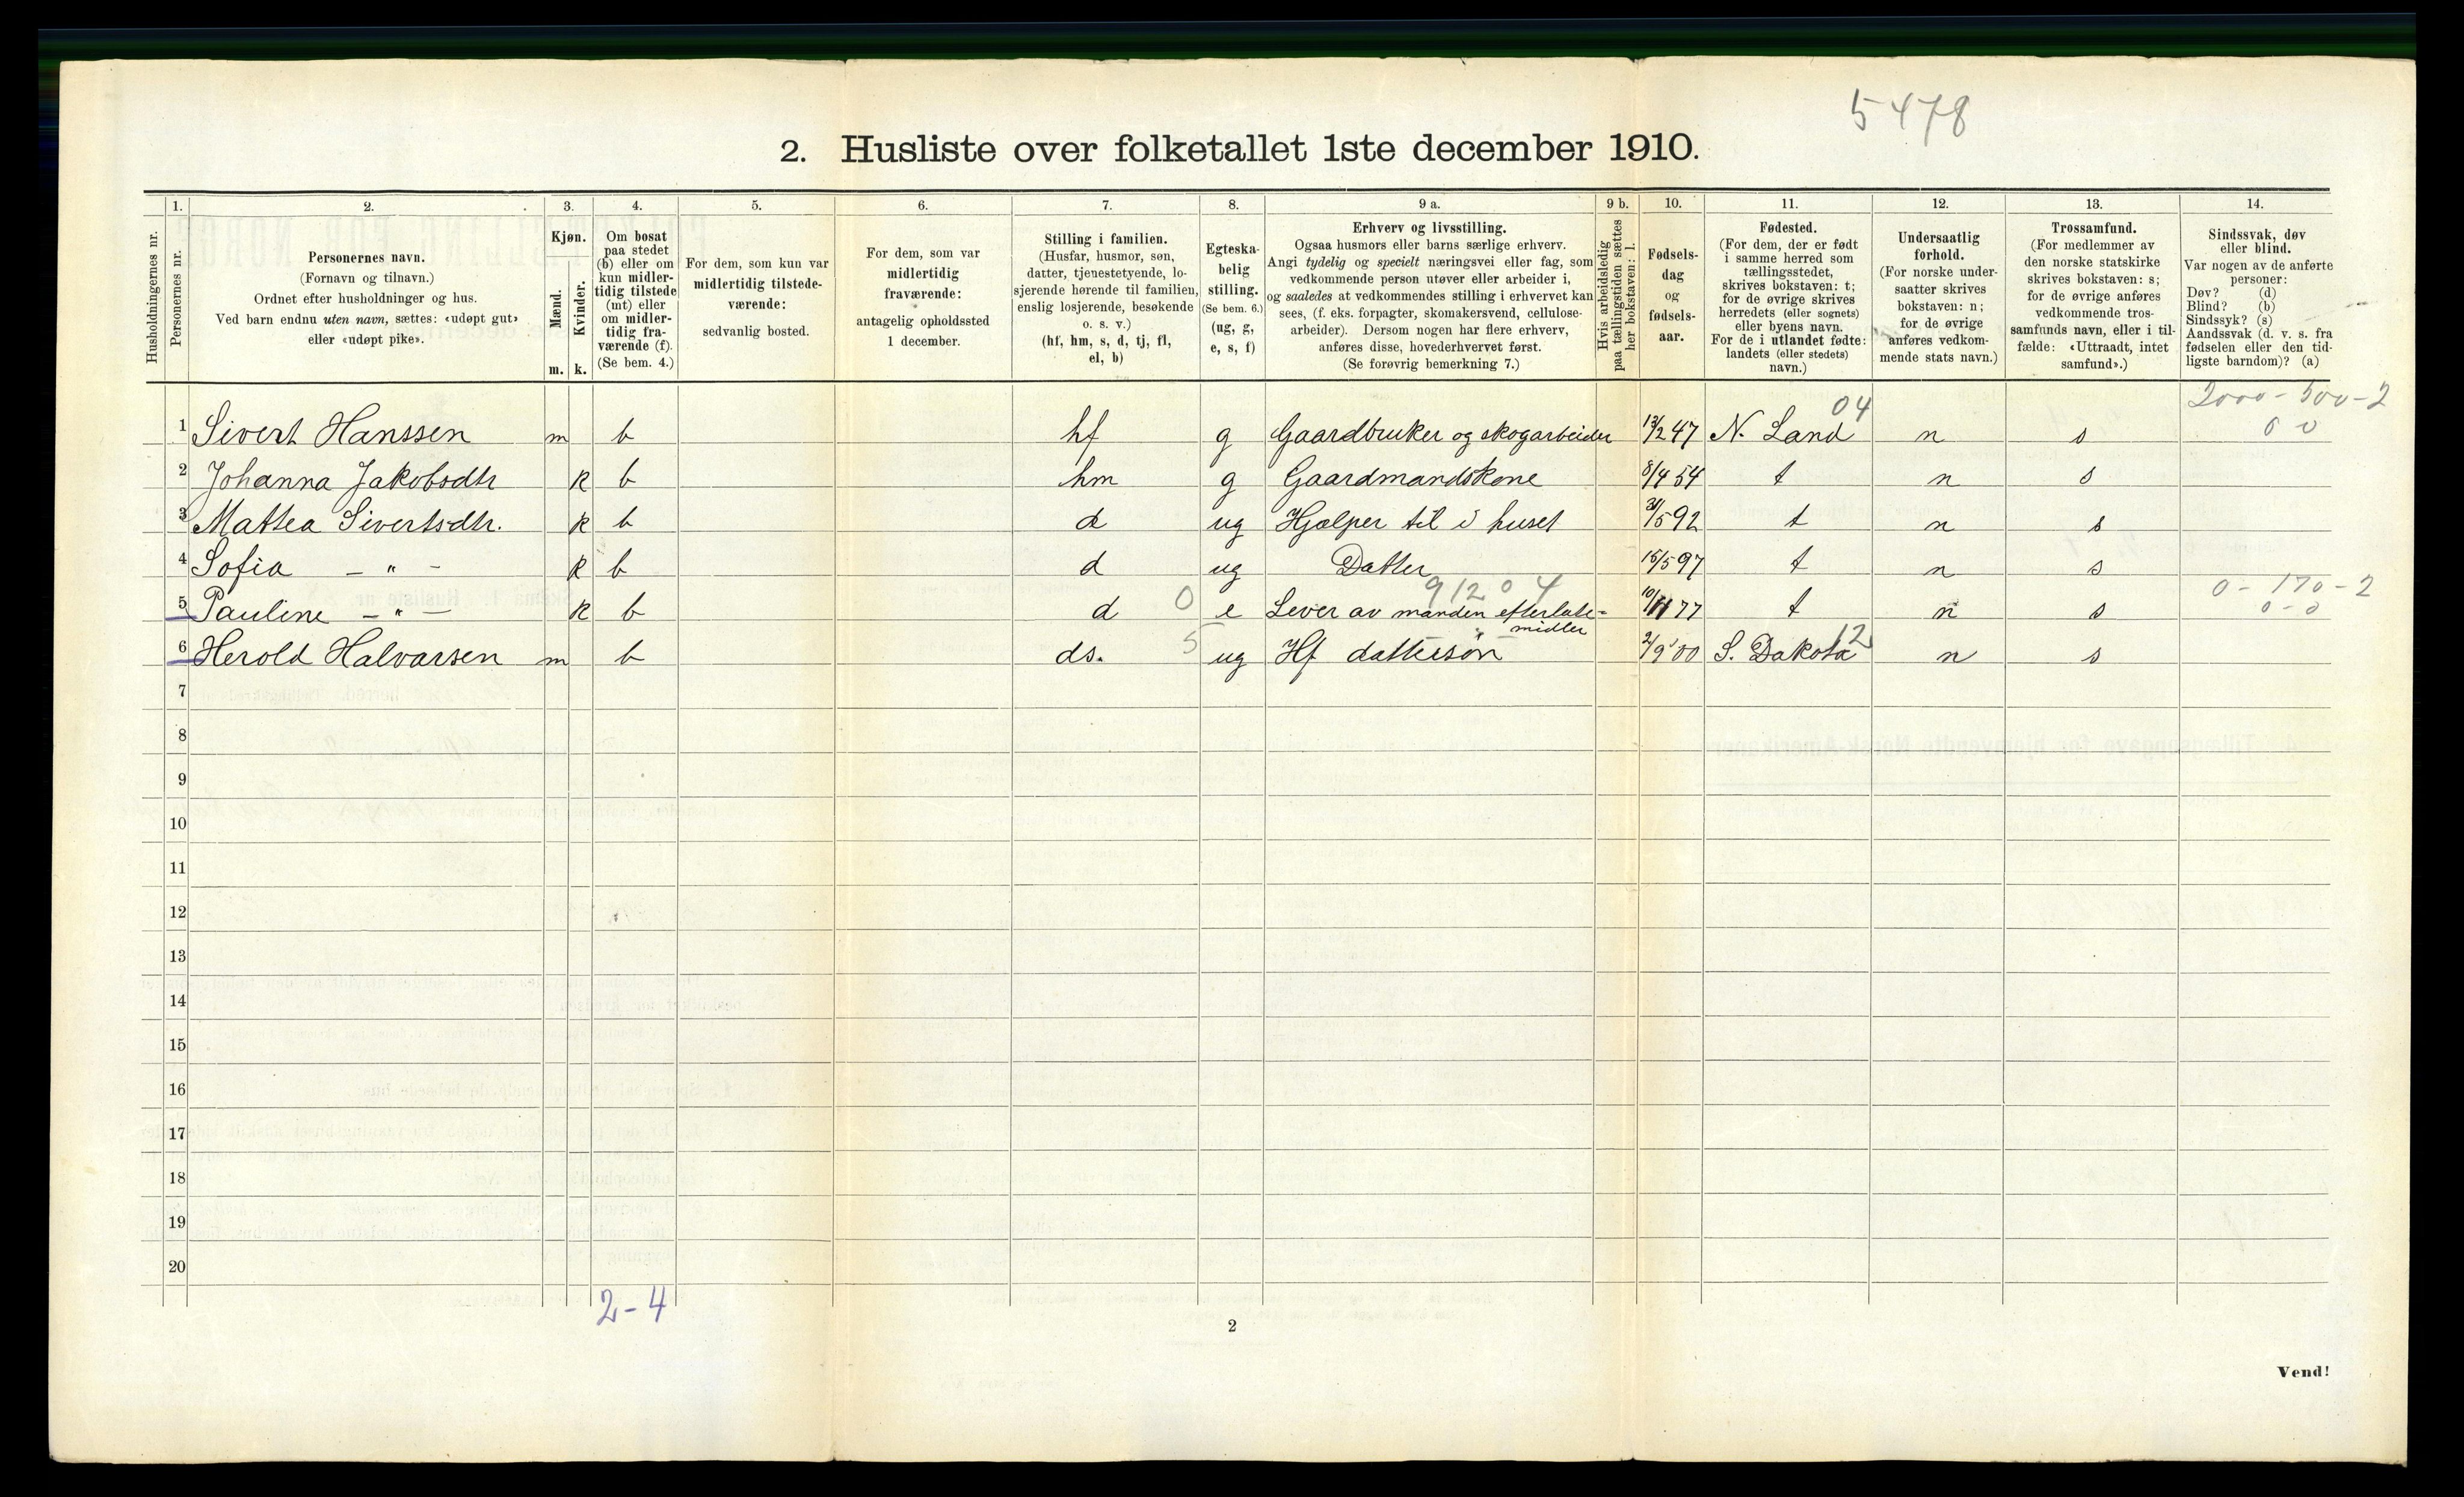 5478
2. Husliste over folketallet 1ste december 1910.
1. 2. 3. 4. 5. 6. 7. 8. 9 a. 9 b. 10. 11. 12. 13. 14.
Husholdningernes nr.
Personernes nr.
Personernes navn.
(Fornavn og tilnavn.)
Ordnet efter husholdninger og hus.
Ved barn endnu uten navn, sættes: «udøpt gut»
eller «udøpt pike».
Kjøn.
Mænd.
Kvinder.
m. k.
Om bosat
paa stedet
(b) eller om
kun midler-
tidig tilstede
(mt) eller
om midler-
tidig fra-
værende (f).
(Se bem. 4.)
For dem, som kun var
midlertidig tilstede-
værende:
sedvanlig bosted.
For dem, som var
midlertidig
fraværende:
antagelig opholdssted
1 december.
Stilling i familien.
(Husfar, husmor, søn,
datter, tjenestetyende, lo-
sjerende hørende til familien,
enslig losjerende, besøkende
o. s. v.)
(hf, hm, s, d, tj, fl,
el, b)
Egteska-
belig
stilling.
(Se bem. 6.)
(ug, g,
e, s, f)
Erhverv og livsstilling.
Ogsaa husmors eller barns særlige erhverv.
Angi tydelig og specielt næringsvei eller fag, som
vedkommende person utøver eller arbeider i,
og saaledes at vedkommendes stilling i erhvervet kan
sees, (f. eks. forpagter, skomakersvend, cellulose-
arbeider). Dersom nogen har flere erhverv,
anføres disse, hovederhvervet først.
(Se forøvrig bemerkning 7.)
Hvis arbeidsledig
paa tællingstiden sættes
her bokstaven: l.
Fødsels-
dag
og
fødsels-
aar.
Fødested.
(For dem, der er født
i samme herred som
tællingsstedet,
skrives bokstaven: t;
for de øvrige skrives
herredets (eller sognets)
eller byens navn.
For de i utlandet fødte:
landets (eller stedets)
navn.)
Undersaatlig
forhold.
(For norske under-
saatter skrives
bokstaven: n;
for de øvrige
anføres vedkom-
mende stats navn.)
Trossamfund.
(For medlemmer av
den norske statskirke
skrives bokstaven: s;
for de øvrige anføres
vedkommende tros-
samfunds navn, eller i til-
fælde: «Uttraadt, intet
samfund».)
Sindssvak, døv
eller blind.
Var nogen av de anførte
personer:
Døv? (d)
Blind? (b)
Sindssyk? (s)
Aandssvak (d. v. s. fra
fødselen eller den tid-
ligste barndom)? (a)
04 2000-500-2
1 Sivert Hanssen m b hf g Gaardbruker og skogarbeider 13/2 47 N. Land n s 0 0
2 Johanna Jakobsdtr k b hm g Gaardmandskone 8/4 54 t n s
3 Mattea Sivertsdtr. k b d ug Hjælper til i huset /5 92 t n s
4 Sofia — " — k b d ug Datter 15/5 97 t n s
91204 0-170-2
5 Pauline — " — k b d 0 e Lever av manden efterlate- 10/11 77 t n s 0-0
" midler
6 Herold Halvarsen m b ds. 5 ug Hf dattersøn 2/9 00 S. Dakota 12 n s
7
8
9
10
11
12
13
14
15
16
17
18
19
20
2-4
2
Vend!